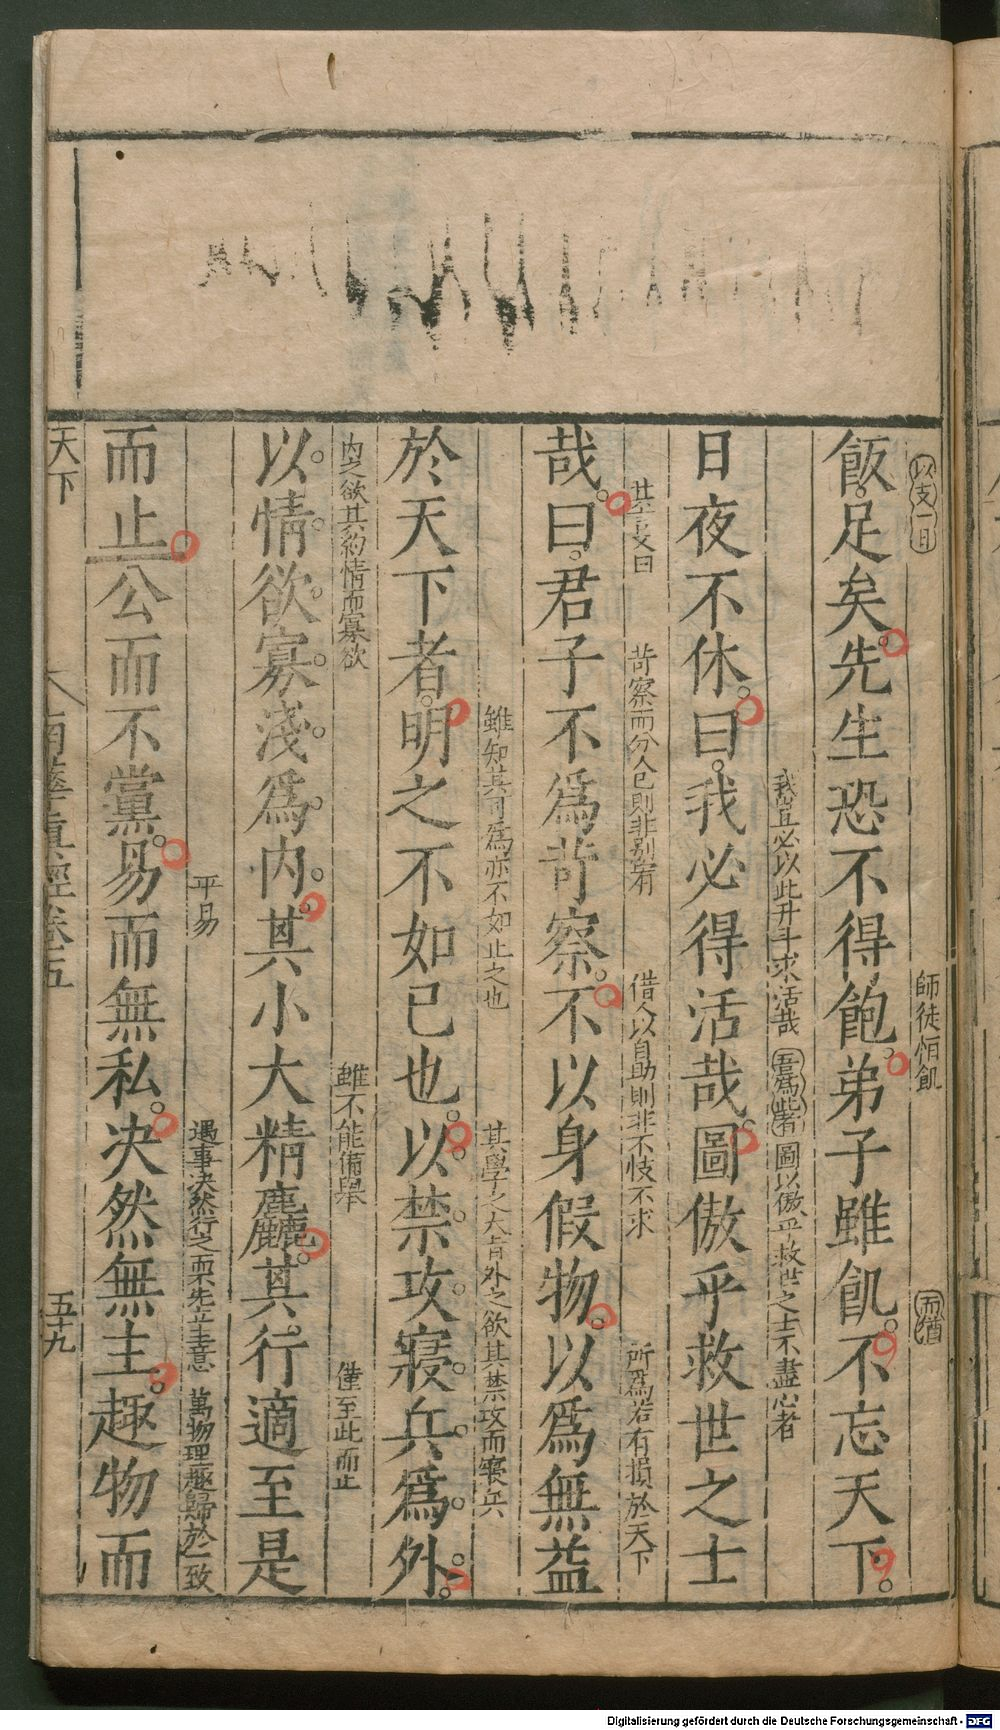 以支一日
師徒怕飢
而猶
飯足矣先生恐不得飽弟子雖飢不忘天下
我豈必以此升斗求活哉 吾爲此者 圖以傲乎救世之士不盡心者
日夜不休曰我必得活哉圖傲乎救世之士
其言又曰
苛察而分人已則非别宥
借人以自助則非不忮不求
所爲若有損於天下
哉曰君子不爲苛察不以身假物以爲無益
雖知其可爲亦不如止之也
其學之大者外之欲其禁攻而寢兵
於天下者明之不如已也以禁攻寢兵爲外
内之欲其約情而寡欲
雖不能備舉
僅至此而止
以情欲寡淺爲内其小大精麤其行適至是
平易
遇事决然行之而不先立主意
萬物理趣歸於一致
而止公而不黨易而無私决然無主趣物而
天下
南華真經卷五
五十九
Digitalisierung gefördert durch die Deutsche Forschungsgemeinschaft - DFG